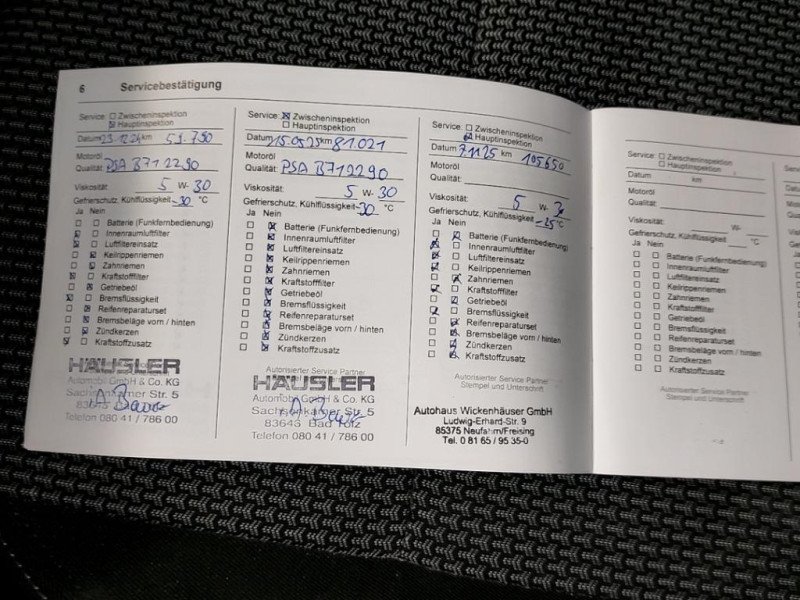 6 Servicebestätigung
Service: ☐ Zwischeninspektion
☒ Hauptinspektion
Datum 23.12.24 km 59.790
Motoröl
Qualität: PSA B71 2290
Viskosität: 5 W- 30
Gefrierschutz, Kühlflüssigkeit -30 °C
Ja Nein
☐ ☒ Batterie (Funkfernbedienung)
☒ ☐ Innenraumluftfilter
☒ ☐ Luftfiltereinsatz
☐ ☒ Keilrippenriemen
☐ ☒ Zahnriemen
☒ ☐ Kraftstofffilter
☐ ☒ Getriebeöl
☒ ☐ Bremsflüssigkeit
☐ ☒ Reifenreparaturset
☐ ☒ Bremsbeläge vorn / hinten
☐ ☒ Zündkerzen
☒ ☐ Kraftstoffzusatz
Autorisierter Service Partner
HÄUSLER
Automobil GmbH & Co. KG
Str. 5
Telefon 080 41 / 786 00
Service: ☒ Zwischeninspektion
☐ Hauptinspektion
Datum 15.05.25 km 81.021
Motoröl
Qualität: PSA B712290
Viskosität: 5 W- 30
Gefrierschutz, Kühlflüssigkeit -30 °C
Ja Nein
☐ ☒ Batterie (Funkfernbedienung)
☐ ☒ Innenraumluftfilter
☐ ☒ Luftfiltereinsatz
☐ ☒ Keilrippenriemen
☐ ☒ Zahnriemen
☐ ☒ Kraftstofffilter
☐ ☒ Getriebeöl
☐ ☒ Bremsflüssigkeit
☐ ☒ Reifenreparaturset
☐ ☒ Bremsbeläge vorn / hinten
☐ ☒ Zündkerzen
☐ ☒ Kraftstoffzusatz
Autorisierter Service Partner
HÄUSLER
Automobil GmbH & Co. KG
Sachsenkamer Str. 5
83646 Bad Tölz
Telefon 080 41 / 786 00
Service: ☐ Zwischeninspektion
☒ Hauptinspektion
Datum 7.11.25 km 105650
Motoröl
Qualität:
Viskosität: 5 W- 30
Gefrierschutz, Kühlflüssigkeit -25 °C
Ja Nein
☐ ☒ Batterie (Funkfernbedienung)
☒ ☐ Innenraumluftfilter
☒ ☐ Luftfiltereinsatz
☒ ☐ Keilrippenriemen
☒ ☐ Zahnriemen
☒ ☐ Kraftstofffilter
☐ ☒ Getriebeöl
☒ ☐ Bremsflüssigkeit
☐ ☒ Reifenreparaturset
☐ ☒ Bremsbeläge vorn / hinten
☐ ☒ Zündkerzen
☐ ☒ Kraftstoffzusatz
Autorisierter Service Partner
Stempel und Unterschrift
Autohaus Wickenhäuser GmbH
Ludwig-Erhard-Str. 9
85375 Neufahrn/Freising
Tel. 0 81 65 / 95 35-0
Service: ☐ Zwischeninspektion
☐ Hauptinspektion
Datum km
Motoröl
Qualität:
Viskosität: W-
Gefrierschutz, Kühlflüssigkeit °C
Ja Nein
☐ ☐ Batterie (Funkfernbedienung)
☐ ☐ Innenraumluftfilter
☐ ☐ Luftfiltereinsatz
☐ ☐ Keilrippenriemen
☐ ☐ Zahnriemen
☐ ☐ Kraftstofffilter
☐ ☐ Getriebeöl
☐ ☐ Bremsflüssigkeit
☐ ☐ Reifenreparaturset
☐ ☐ Bremsbeläge vorn / hinten
☐ ☐ Zündkerzen
☐ ☐ Kraftstoffzusatz
Autorisierter Service Partner
Stempel und Unterschrift